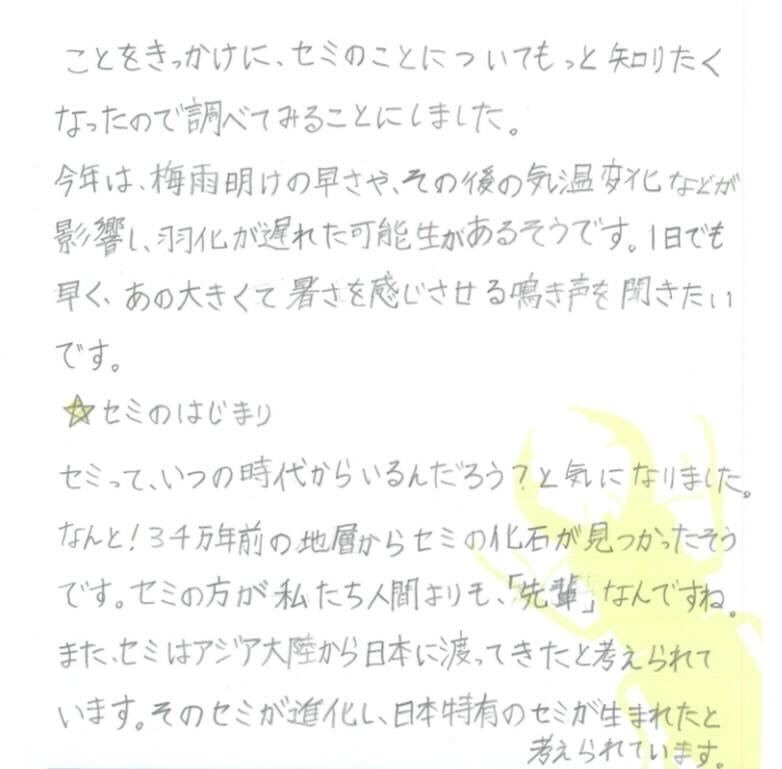 ことをきっかけに、セミのことについてもっと知りたく
なったので調べてみることにしました。
今年は、梅雨明けの早さや、その後の気温変化などが
影響し、羽化が遅れた可能生があるそうです。1日でも
早く、あの大きくて暑さを感じさせる鳴き声を聞きたい
です。
☆セミのはじまり
セミって、いつの時代からいるんだろう?と気になりました。
なんと!3千万年前の地層からセミの化石が見つかったそう
です。セミの方が私たち人間よりも、「先輩」なんですね。
また、セミはアジア大陸から日本に渡ってきたと考えられて
います。そのセミが進化し、日本特有のセミが生まれたと
考えられています。